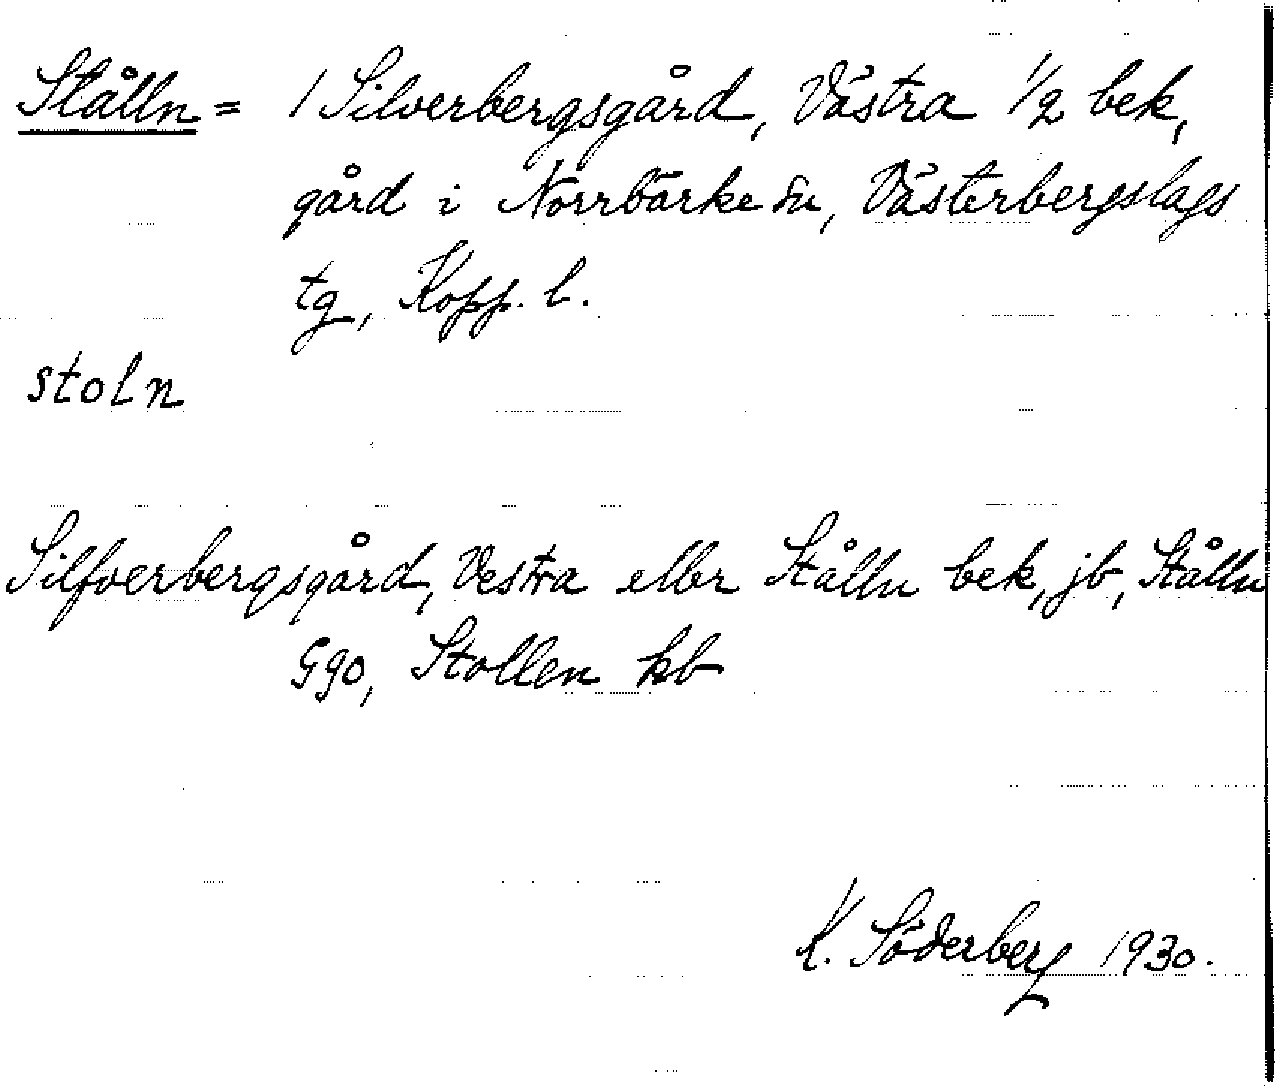 Stålln = / Silverbergsgård, Västra 1/2 bek,
gård i Norrbärke sn, Västerbergslags
tg, Kopp. l.
stoln
Silfverbergsgård, Vestra eller Stålln bek, jb, Stålln
Ggo, Stollen kb
K. Söderberg 1930.